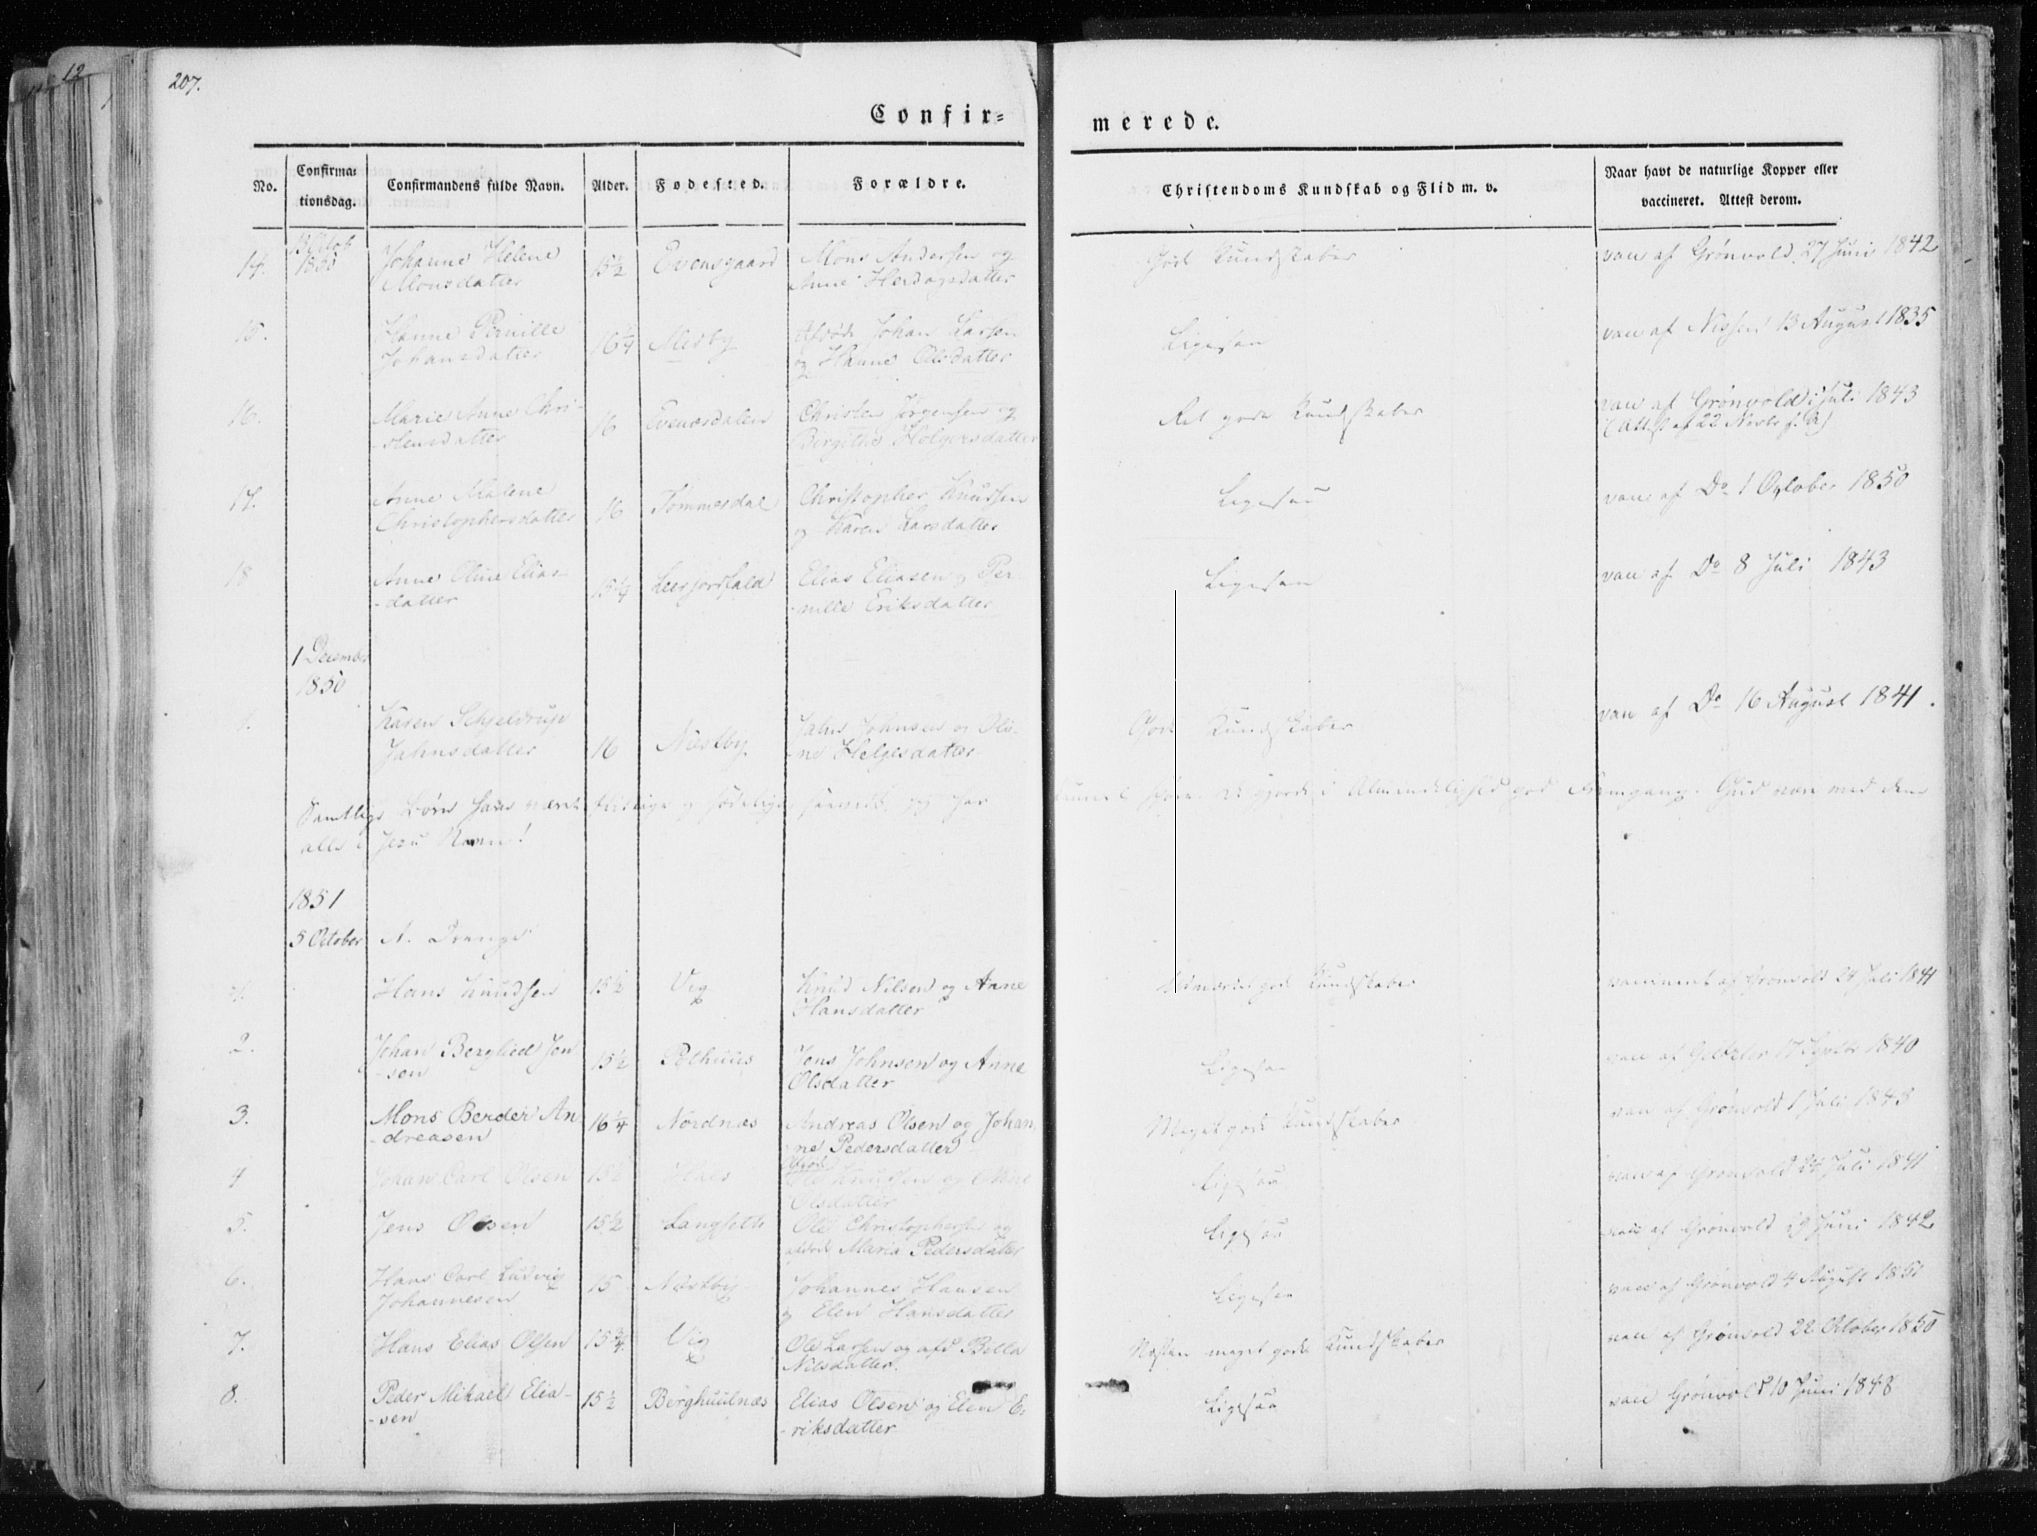 12
207.
Confir= merede.
No. Confirma= tionsdag. Confirmandens fulde Navn. Alder. Fødested. Forældre. Christendoms Kundskab og Flid m. v. Naar havt de naturlige Kopper eller vaccineret. Attest derom.
1850
14. Johanne Helene 15½ Evensgaard Mons Andersen og God Kundskaber vac af Grønvold 27 Juni 1842
Monsdatter Anne Herdagsdatter
15. Hanne Pernille 16¼ Mesby Afdøde Johan Larsen Ligesaa vac af Nissen 13 August 1835
Johansdatter og Hanne Olsdatter
16. Marie Anne Chri- 16 Christen Jørgensen og Ret gode Kundskaber vac af Grønvold i Juli 1843
-stensdatter Birgithe Holgersdatter (Att af 22 Novbr
17. Anne Malene 16 Tommesdal Christopher Knudsen Ligesaa vac af Do 1 October 1850
Christophersdatter og Karen Larsdatter
18 Anne Oline Elias- 15¼ Elias Eliasen og Per- Ligesaa vac af Do 8 Juli 1843
-datter -nille Eriksdatter
1 December
1850
1. Karen Schjeldrup 16 Næstby Jahn Johnsen og Oli- Gode Kundskaber vac af Do 16 August 1841.
Jahnsdatter -ne Helgesdatter
Samtlige Børn have været flittige og sædelige og har i Almindelighed god Fremgang. Gud være med dem
alle i Jesu Navn!
1851
5 October A. Drenge
1. Hans Knudsen 15½ Vig Knud Nilsen og Anne Udmærket gode Kundskaber vaccineret af Grønvold 24 Juli 1841
Hansdatter
2. Johan Berglied Jen 15½ Pothuus Jens Johnsen og Anne Ligesaa vac af 1840
-sen Olsdatter
3. Mons Berder An 16¼ Nordnæs Andreas Olsen og Johan Meget gode Kundskaber vac af Grønvold 1 Juli 1843
-dreasen -ne Pedersdatter
4 Johan Carl Olsen 15½ Afdøde Ole Knudsen og Ligesaa vac af Grønvold 24 Juli 1841
Olsdatter
5. Jens Olsen 15½ Langsetle Ole Christophersen og Ligesaa vac af Grønvold 29 Juni 1842
afdøde Maria Pedersdatter
6. Hans Carl Ludvig 15 Næstby Johannes Hansen Ligesaa vac af Grønvold 4 August 1851
Johannesen og Elen Hansdatter
7. Hans Elias Olsen 15¾ Vig Ole Larsen og afd Bolla Næsten meget gode Kundskaber vac af Grønvold 22 October 1850
Nilsdatter.
8. Peder Mikael Elia- 15½ Berghuulnæs Elias Olsen og Elen E- Ligesaa vac Grønvold 10 Juni 1848
-sen -riksdatter